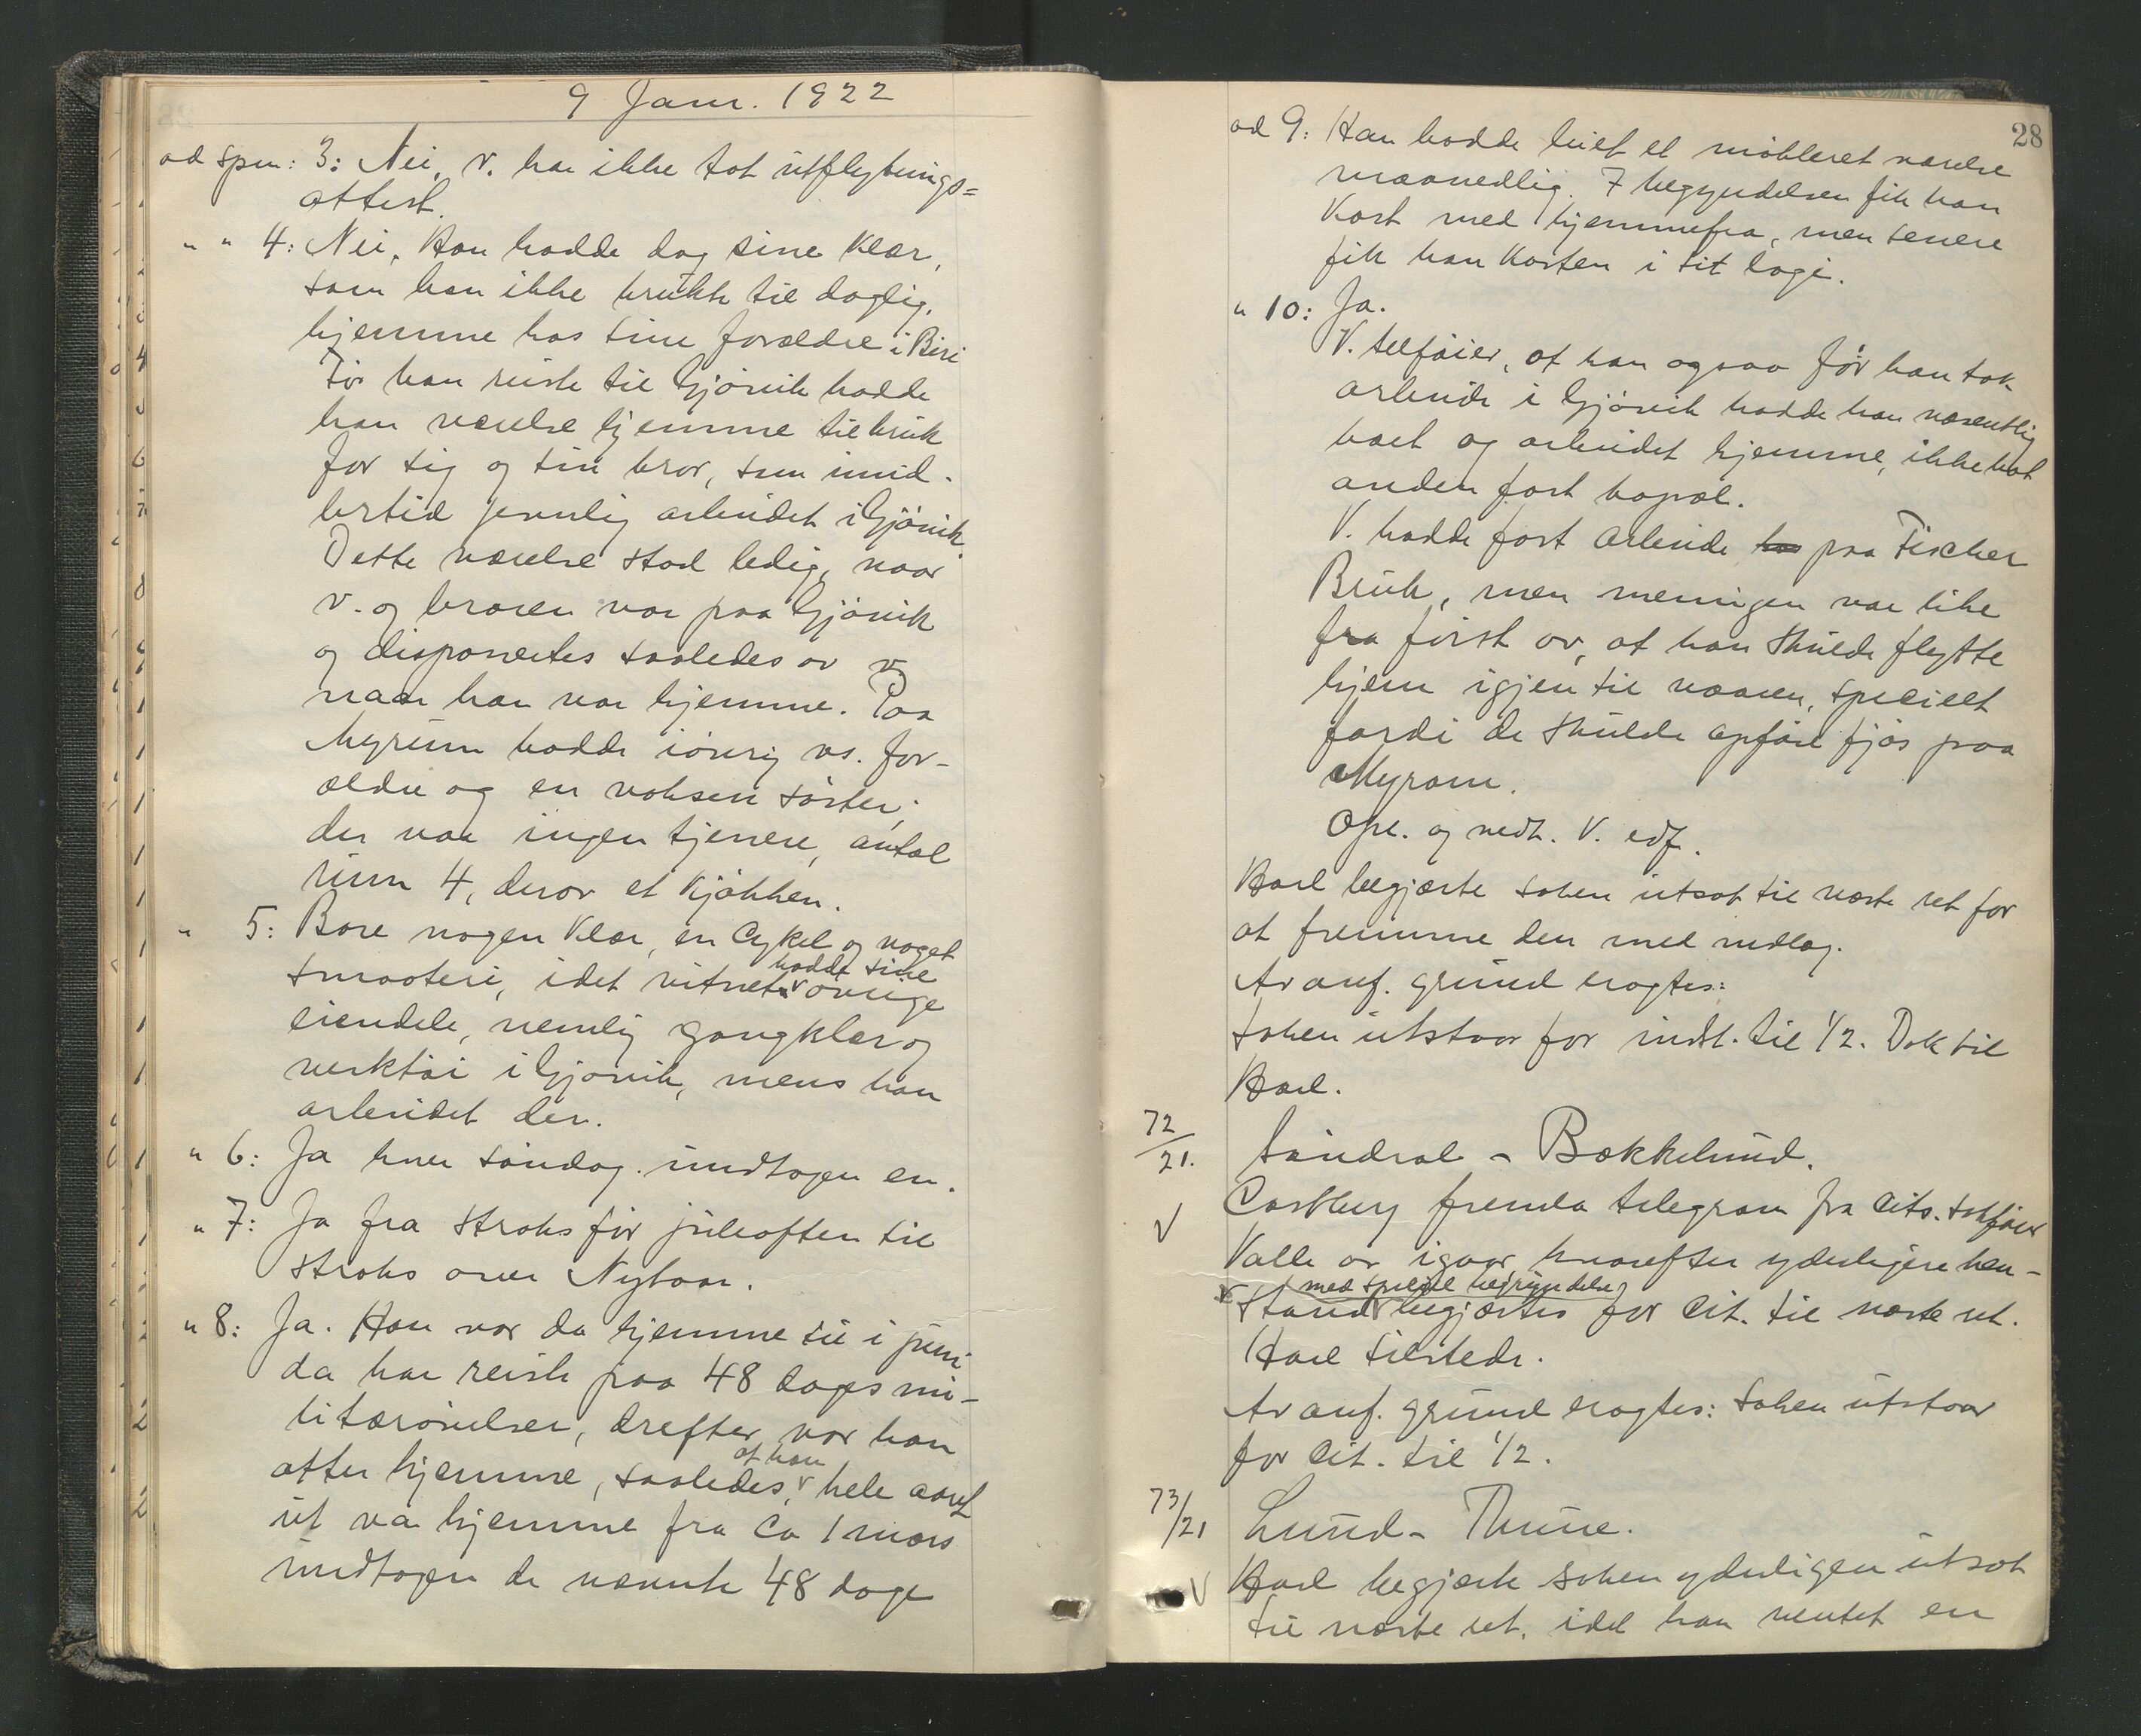 9 Janr. 1922
ad spm: 3: Nei, v. har ikke tat utflytnings=
attest.
" " 4: Nei. Han hadde dog sine klær,
som han ikke brukte til daglig,
hjemme hos sine forældre i Biri
Før han reiste til Gjövik hadde
han værelse hjemme til bruk
for sig og sin bror, som imid-
lertid jevnlig arbeidet i Gjövik.
Dette værelse stod ledig, naar
v. og broren var paa Gjövik
og disponertes saaledes av v.
naar han var hjemme. Paa
Myrum hadde iövrig vs. for-
ældre og en voksen söster;
der var ingen tjenere, antal
rum 4, derav et kjökken.
" 5: Bare nogen klær, en Cykel og noget
smaateri, idet vitnet hadde sine övrige
eiendele, nemlig gangklær og
verktöi i Gjövik, mens han
arbeidet der.
" 6: Ja hver söndag. undtagen en.
" 7: Ja fra straks för juleaften til
straks over Nytaar.
" 8: Ja. Han var da hjemme til i juni
da han reiste paa 48 dages mi-
litærövelser, derefter var han
atter hjemme, saaledes at han hele aaret
ut var hjemme fra Ca 1 mars
undtagen de nævnte 48 dage
28
ad 9: Han hadde leiet et möbleret værelse
maanedlig. I begyndelsen fik han
Kost med hjemmefra, men senere
fik han Kosten i sit logi.
" 10: Ja.
V. tilföier, at han ogsaa för han tok
arbeide i Gjövik hadde han væsentlig
boet og arbeidet hjemme, ikke hat
anden fast bopæl.
V. hadde fast Arbeide hos paa Fischer
Bruk, men meningen var like
fra först av, at han skulde flytte
hjem igjen til vaaren, specielt
fordi de skulde opföre fjös paa
Myrom.
Opl. og vedt. V. edf.
Karl begjærte saken utsat til næste ret for
at fremme den med indlæg.
Av anf. grund eragtes:
Saken utstaar for indl. til 1/2. Dok til
Karl.
72/21. Sündral - Bækkelund.
V Castberg fremla telegram fra Cits. Sakförer
Valle av igaar, hvorefter yderligere hen-
stand med speciel begrundelse begjærtes for Cit. til næste ret.
Karl tilstede.
Av anf. grund eragtes: Saken utstaar
for Cit. til 1/2.
73/21 Lund - Thune.
V Karl begjærte saken yderligere utsat
til næste ret, idet han ventet en